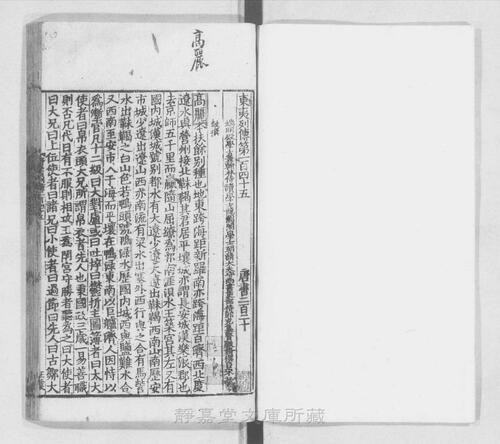 高麗
東夷列傳第一百四十五
唐書二百二十
高麗本扶餘別種也地東跨海距新羅南亦跨海距百濟西北度
遼水與營州接北靺鞨其君居平壤城亦謂長安城漢樂浪郡也
去京師五千里而贏隨山屈繚為郛南涯浿水王築宮其左又有
國內城漢城號別都水有大遼少遼大遼出靺鞨西南山南歷安
市城少遼出遼山西亦南流有梁水出塞外西行與之合有馬訾
水出靺鞨之白山色若鴨頭號鴨淥水歷國內城西與鹽難水合
又西南至安市入于海而平壤在鴨淥東南以巨艫濟人因恃以
為塹官凡十二級曰大對盧或曰吐捽曰鬱折主圖簿者曰太大
使者曰帛衣頭大兄所謂帛衣者先人也秉國政三歲一易善職
則否凡代日有不服則相攻王為閉宮守勝者聽為之曰大使者
曰大兄曰上位使者曰諸兄曰小使者曰過節曰先人曰古鄒大
靜嘉堂文庫所藏